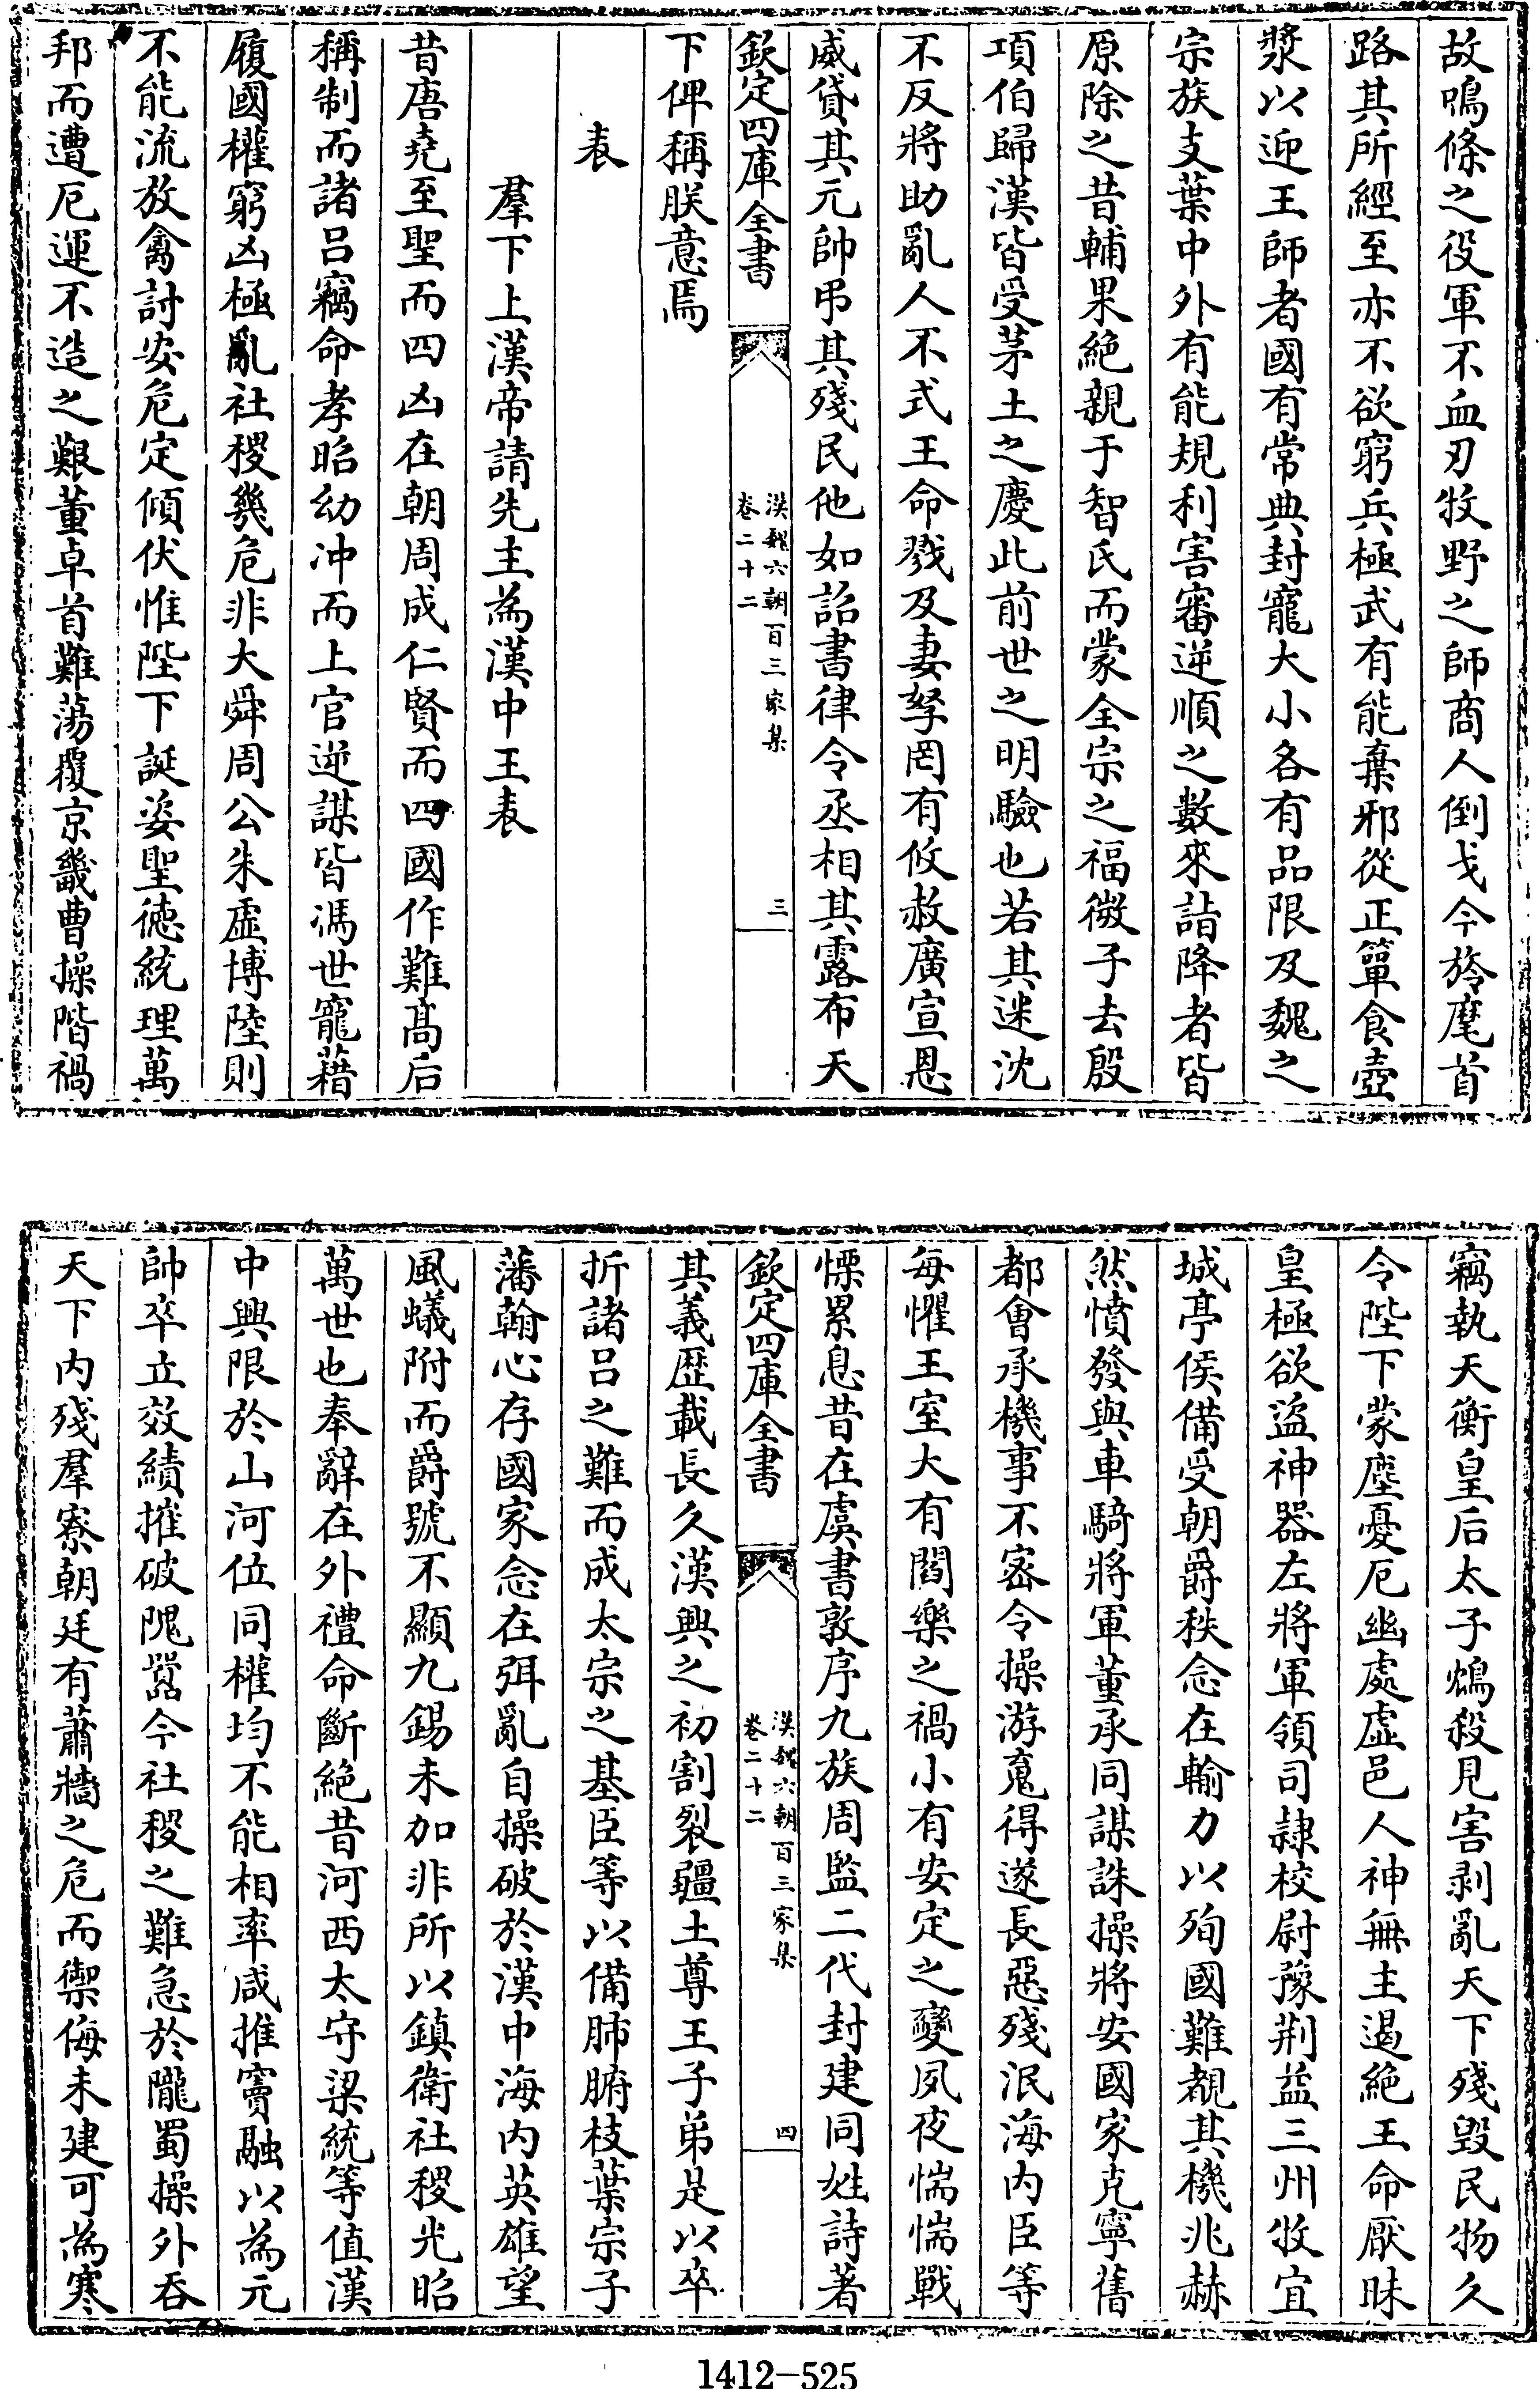 故鳴條之役軍不血刃牧野之師商人倒戈今旍麾首
路其所經至亦不欲窮兵極武有能棄邪從正簞食壺
漿以迎王師者國有常典封寵大小各有品限及魏之
宗族支葉中外有能規利害審逆順之數來詣降者皆
原除之昔輔果絶親于智氏而蒙全宗之福微子去殷
項伯歸漢皆受茅土之慶此前世之明驗也若其迷沈
不反將助亂人不式王命戮及妻孥罔有攸赦廣宣恩
威貸其元帥弔其殘民他如詔書律令丞相其露布天
欽定四庫全書
漢魏六朝百三家集
卷二十二
三
下俾稱朕意焉
表
羣下上漢帝請先主為漢中王表
昔唐堯至聖而四凶在朝周成仁賢而四國作難髙后
稱制而諸呂竊命孝昭幼冲而上官逆謀皆馮世寵藉
履國權窮凶極亂社稷幾危非大舜周公朱虛博陸則
不能流放禽討安危定傾伏惟陛下誕姿聖德統理萬
邦而遭厄運不造之艱董卓首難蕩覆京畿曹操階禍
竊執天衡皇后太子鴆殺見害剥亂天下殘毀民物久
令陛下蒙塵憂厄幽處虛邑人神無主遏絶王命厭昧
皇極欲盗神器左將軍領司隷校尉豫荆益三州牧宜
城亭侯備受朝爵秩念在輸力以殉國難覩其機兆赫
然憤發與車騎將軍董承同謀誅操將安國家克寧舊
都會承機事不密令操游魂得遂長惡殘泯海内臣等
每懼王室大有閻樂之禍小有安定之變夙夜惴惴戰
慄累息昔在虞書敦序九族周監二代封建同姓詩著
欽定四庫全書
漢魏六朝百三家集
卷二十二
四
其義歴載長久漢興之初割裂疆土尊王子弟是以卒
折諸呂之難而成太宗之基臣等以備肺腑枝葉宗子
藩翰心存國家念在弭亂自操破於漢中海内英雄望
風蟻附而爵號不顯九錫未加非所以鎮衛社稷光昭
萬世也奉辭在外禮命斷絶昔河西太守梁統等值漢
中興限於山河位同權均不能相率咸推竇融以為元
帥卒立效績摧破隗囂今社稷之難急於隴蜀操外吞
天下内殘羣寮朝廷有蕭牆之危而禦侮未建可為寒
1412-525